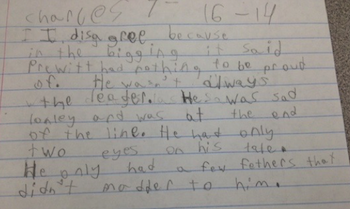 charles 7- 16-14
I I disagree because
in the bigging it said
Prewitt had nothing to be proud
of. He wasn't always
the leader. He was sad
lonley and was at the end
of the line. He had only
two eyes on his tale.
He only had a few fethers that
didn't madder to him.